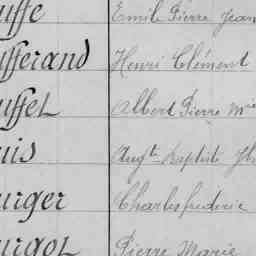 uffe Emile Pierre Jean
ufferand Henri Clément
uffet Albert Pierre Mie
uis Augte Baptiste
urger Charles frederic
urgot Pierre Marie